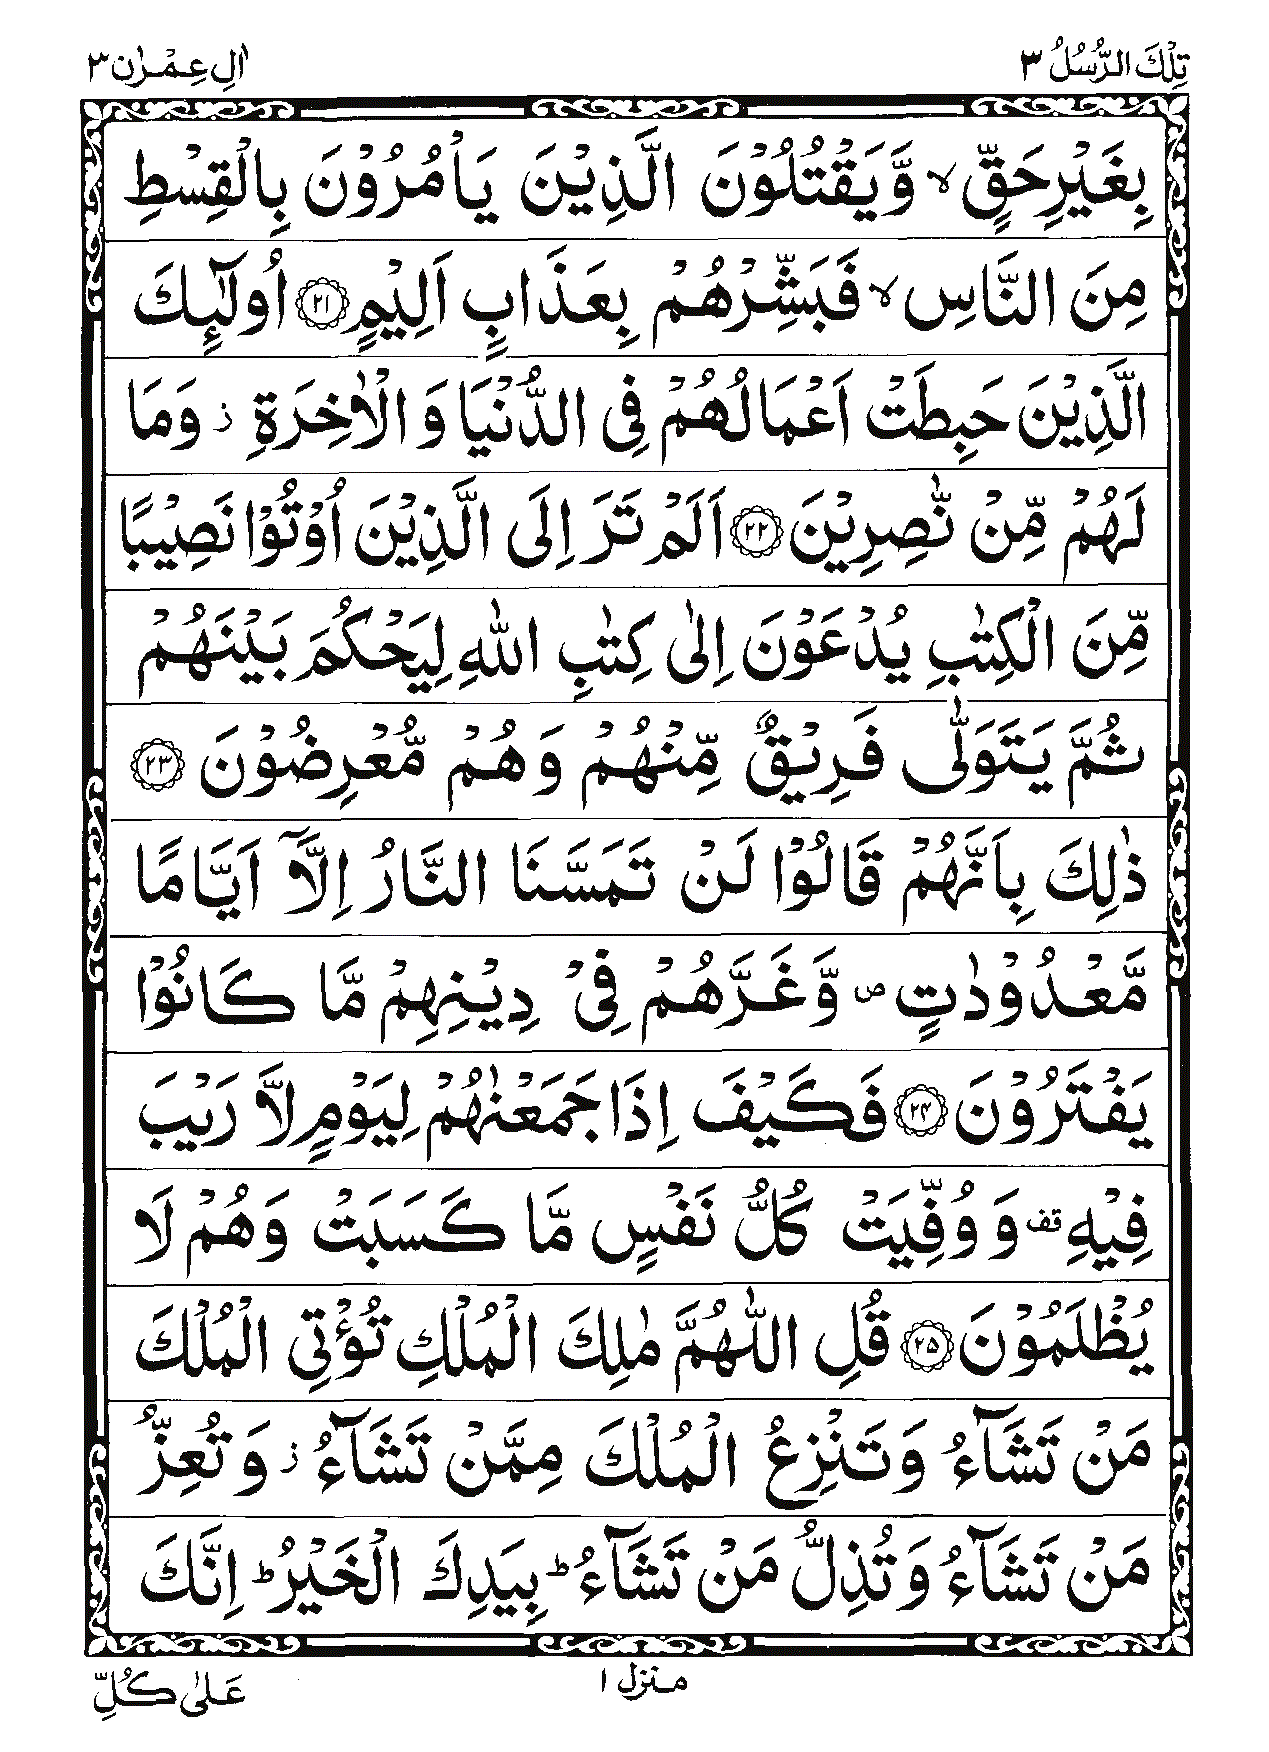 تِلْكَ الرُّسُلُ ٣
اٰلِ عِمْرٰن ٣
بِغَيْرِ حَقٍّ ۙ وَّيَقْتُلُوْنَ الَّذِيْنَ يَاْمُرُوْنَ بِالْقِسْطِ
مِنَ النَّاسِ ۙ فَبَشِّرْهُمْ بِعَذَابٍ اَلِيْمٍ ﴿٢١﴾ اُولٰٓئِكَ
الَّذِيْنَ حَبِطَتْ اَعْمَالُهُمْ فِى الدُّنْيَا وَ الْاٰخِرَةِ ز وَمَا
لَهُمْ مِّنْ نّٰصِرِيْنَ ﴿٢٢﴾ اَلَمْ تَرَ اِلَى الَّذِيْنَ اُوْتُوْا نَصِيْبًا
مِّنَ الْكِتٰبِ يُدْعَوْنَ اِلٰى كِتٰبِ اللّٰهِ لِيَحْكُمَ بَيْنَهُمْ
ثُمَّ يَتَوَلّٰى فَرِيْقٌ مِّنْهُمْ وَهُمْ مُّعْرِضُوْنَ ﴿٢٣﴾
ذٰلِكَ بِاَنَّهُمْ قَالُوْا لَنْ تَمَسَّنَا النَّارُ اِلَّاۤ اَيَّامًا
مَّعْدُوْدٰتٍ ص وَّغَرَّهُمْ فِىْ دِيْنِهِمْ مَّا كَانُوْا
يَفْتَرُوْنَ ﴿٢٤﴾ فَكَيْفَ اِذَا جَمَعْنٰهُمْ لِيَوْمٍ لَّا رَيْبَ
فِيْهِ قف وَ وُفِّيَتْ كُلُّ نَفْسٍ مَّا كَسَبَتْ وَهُمْ لَا
يُظْلَمُوْنَ ﴿٢٥﴾ قُلِ اللّٰهُمَّ مٰلِكَ الْمُلْكِ تُؤْتِى الْمُلْكَ
مَنْ تَشَآءُ وَتَنْزِعُ الْمُلْكَ مِمَّنْ تَشَآءُ ز وَ تُعِزُّ
مَنْ تَشَآءُ وَ تُذِلُّ مَنْ تَشَآءُ ؕ بِيَدِكَ الْخَيْرُ ؕ اِنَّكَ
منزل ١
عَلٰى كُلِّ